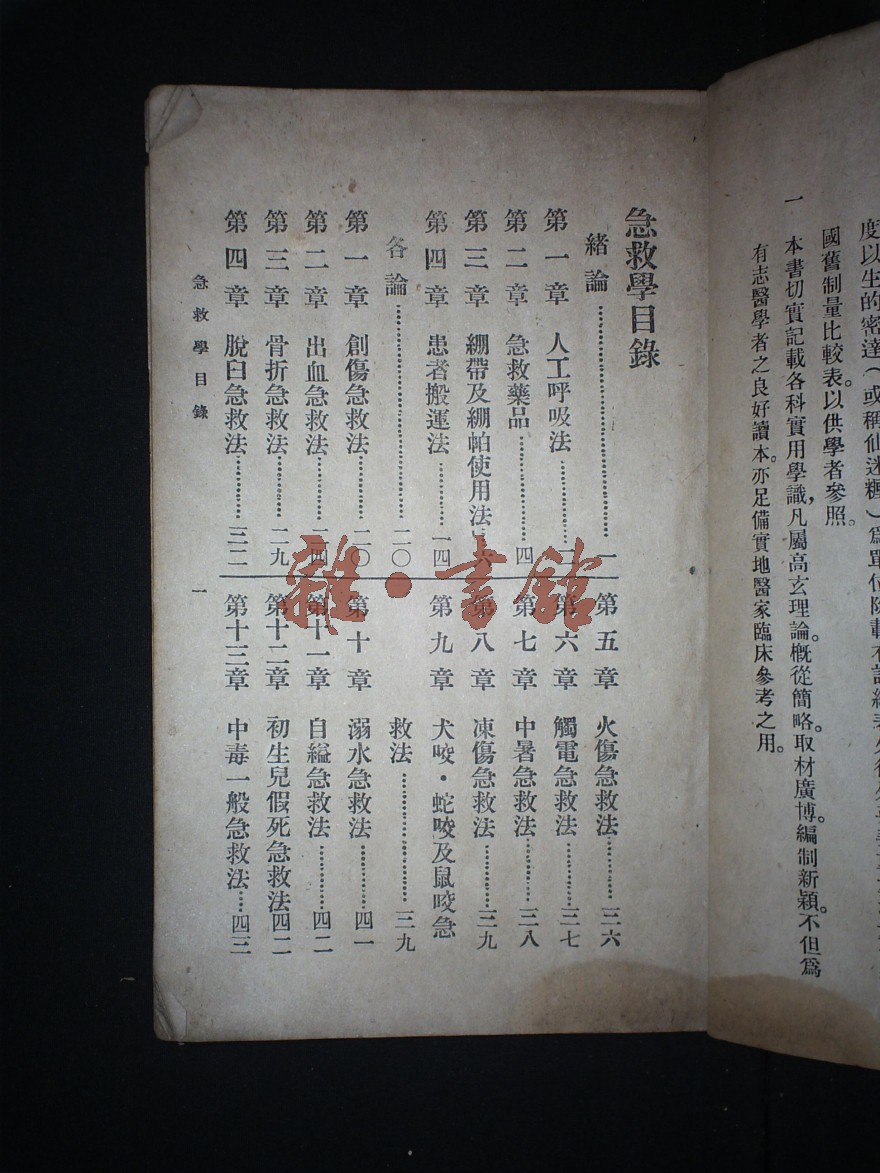 度以生的密達(或稱仙迷糎)爲單位
國舊制量比較表。以供學者參照。
一 本書切實記載各科實用學識,凡屬高玄理論。概從簡略。取材廣博。編制新穎。不但爲
有志醫學者之良好讀本。亦足備實地醫家臨床參考之用。
急救學目錄
緒論……一
第一章 人工呼吸法……
第二章 急救藥品……四
第三章 綳帶及綳帕使用法…六
第四章 患者搬運法……一四
各論……二〇
第一章 創傷急救法……二〇
第二章 出血急救法……二四
第三章 骨折急救法……二九
第四章 脫臼急救法……三二
第五章 火傷急救法……三六
第六章 觸電急救法……三七
第七章 中暑急救法……三八
第八章 凍傷急救法……三九
第九章 犬咬・蛇咬及鼠咬急
救法……三九
第十章 溺水急救法……四一
第十一章 自縊急救法……四二
第十二章 初生兒假死急救法四二
第十三章 中毒一般急救法…四三
急救學目錄
一
雜・書館